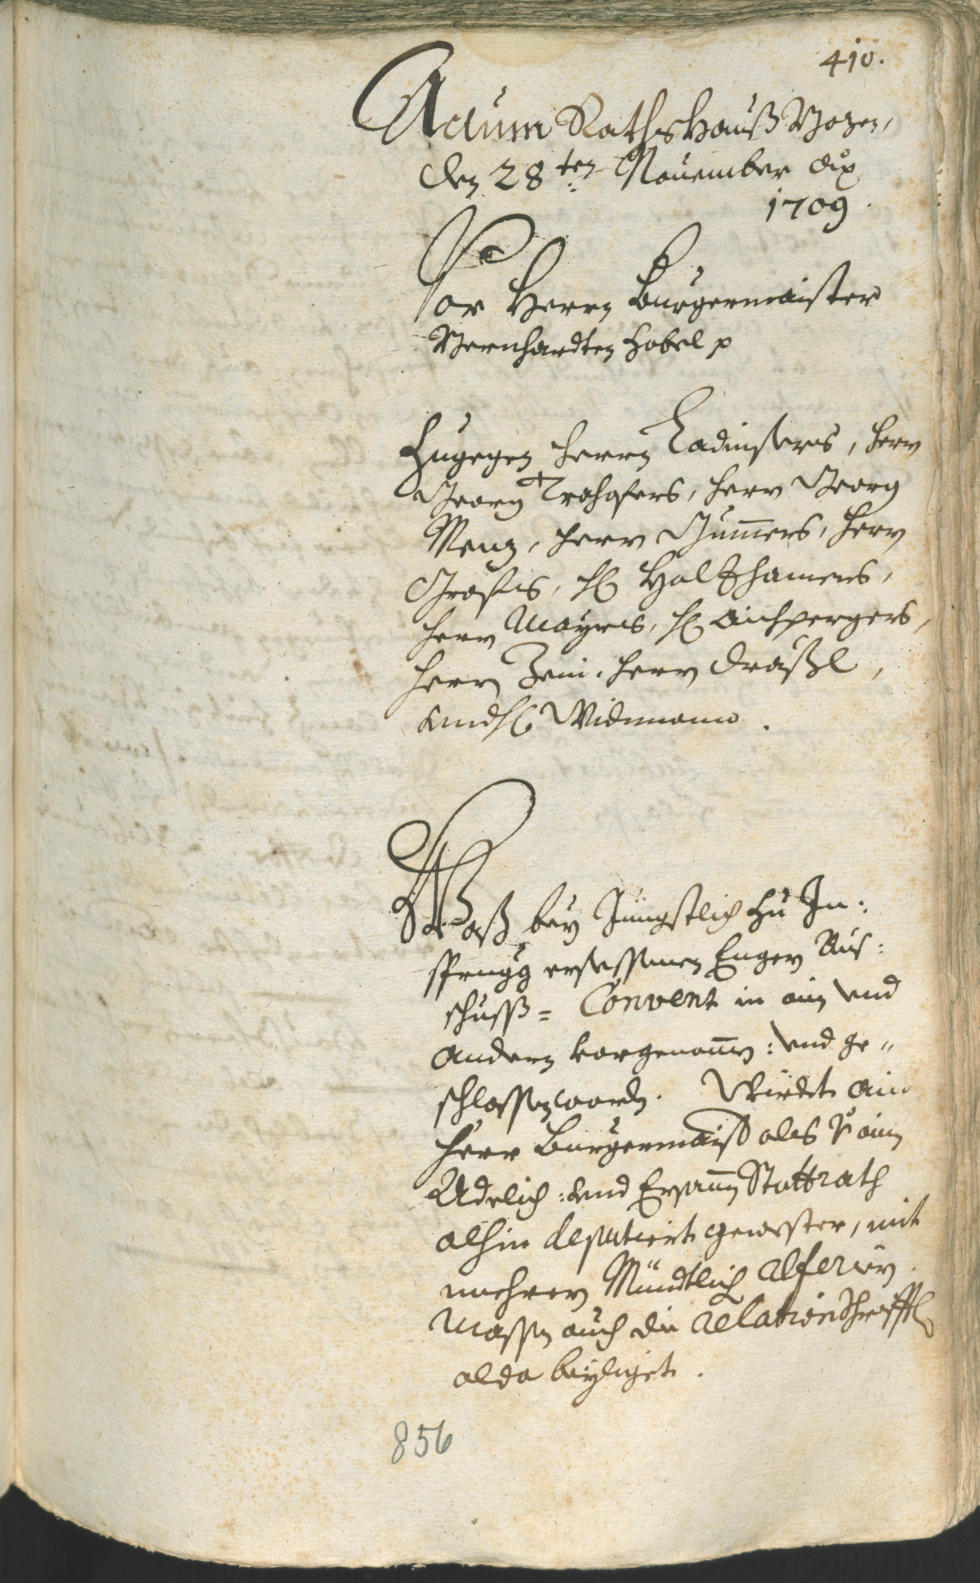 410.
Actum Rathshauß Bozen,
den 28ten November diß
1709.
Vor Herrn Burgermaister
Bernhardten Hobel p
Zugegen herrn Ladinsers, herr
Georg Trohofers, herr Georg
Menz, herrn Gummers, herrn
Grafis, H: Holzhamers,
herrn Mayrls, H: Aichpergers,
herrn Zeni, herrn Dräxl,
und H: Widmann.
Waß bey Jüngstlich zu Jn:
sprugg ersessenen Enger Aus:
schuss= Convent in ain und
andern vorgenomen: und ge„
schlossen worden. Würdet ain
Herr Burgermaister als von ainem
Adelich: und Ersamen Stattrath
alhin deputiert gewester, mit
mehrern Mündtlich referiern.
Massen auch die relation Schrifftl:
alda beyligt.
856